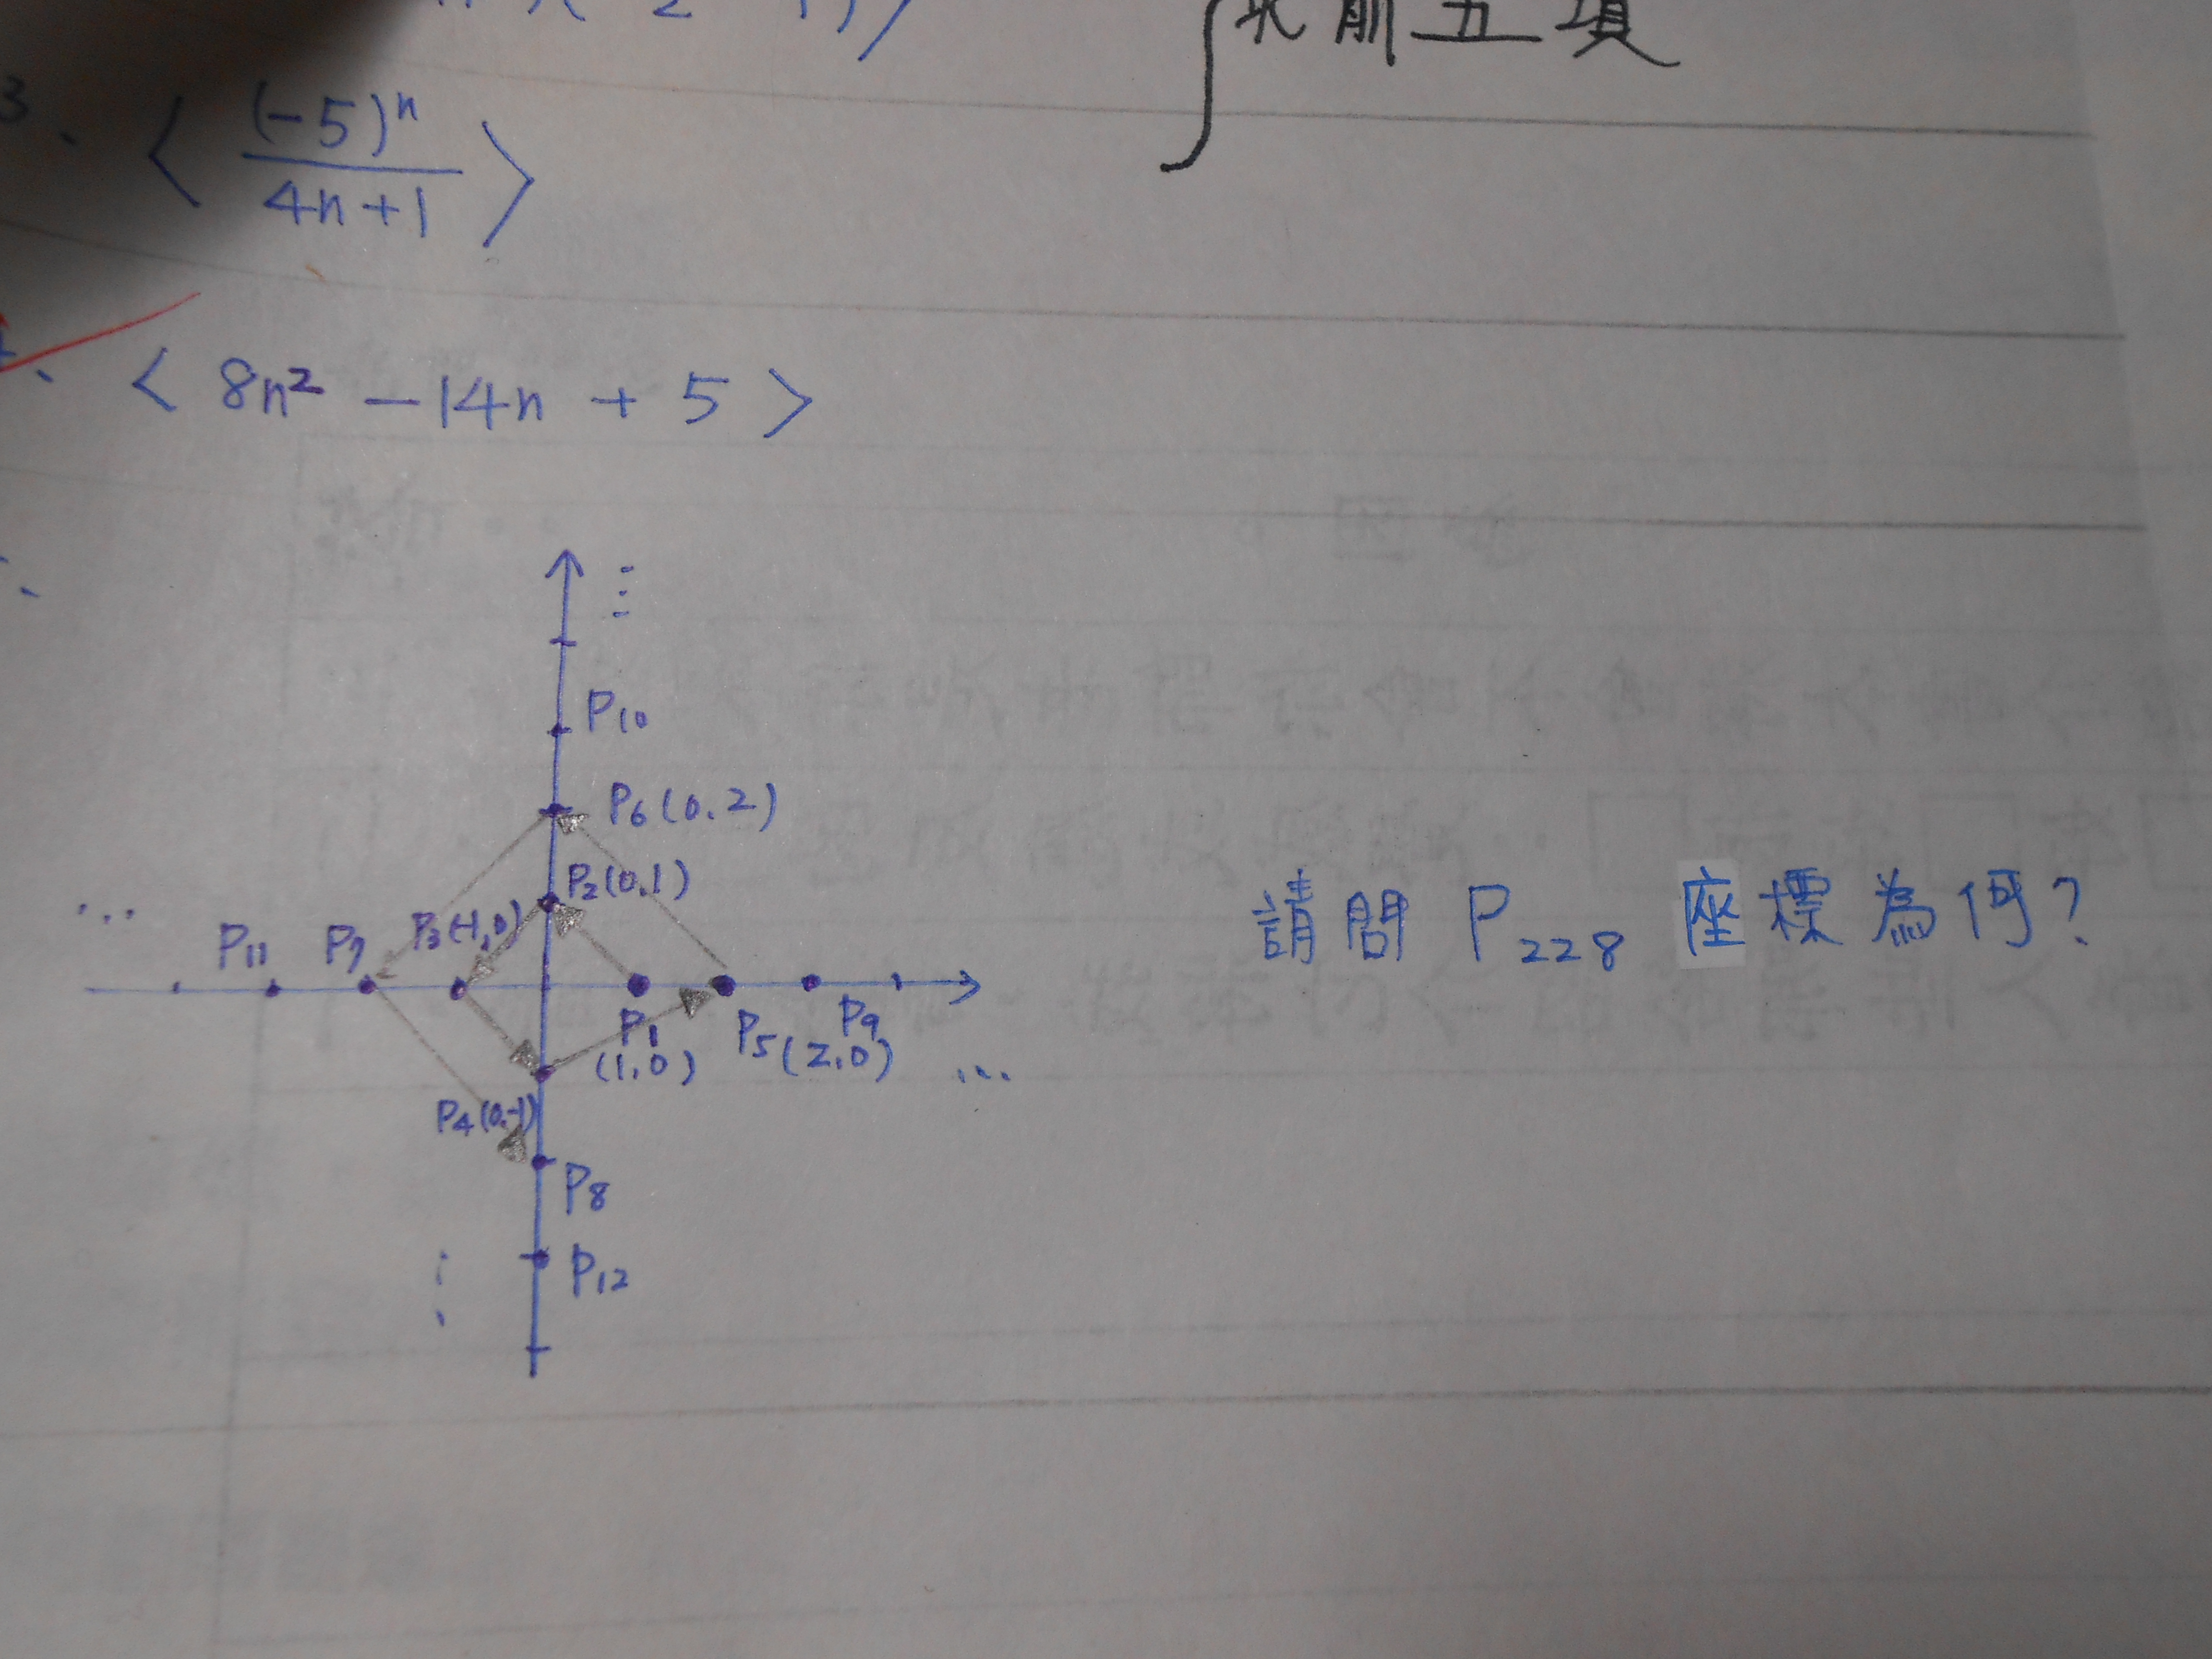 求前五項
3、〈 (-5)ⁿ / 4n+1 〉
〈 8n² - 14n + 5 〉
P₁₀
P₆(0,2)
P₂(0,1)
P₁₁ P₇ P₃(-1,0)
P₁ (1,0)
P₅(2,0)
P₉
P₄(0,-1)
P₈
P₁₂
請問 P₂₂₈ 座標為何?